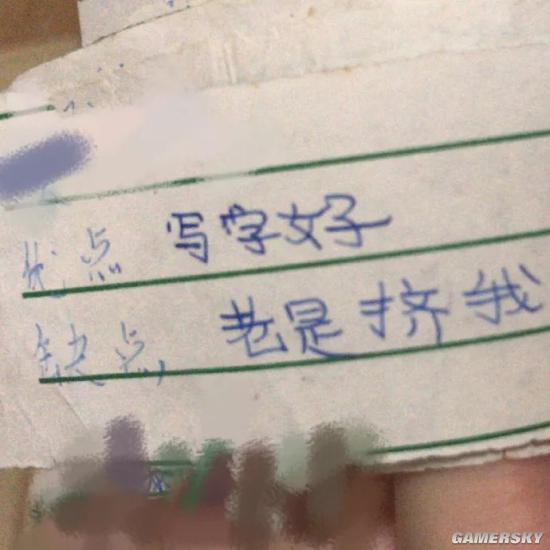 优点 写字好
缺点 老是挤我
GAMERSKY